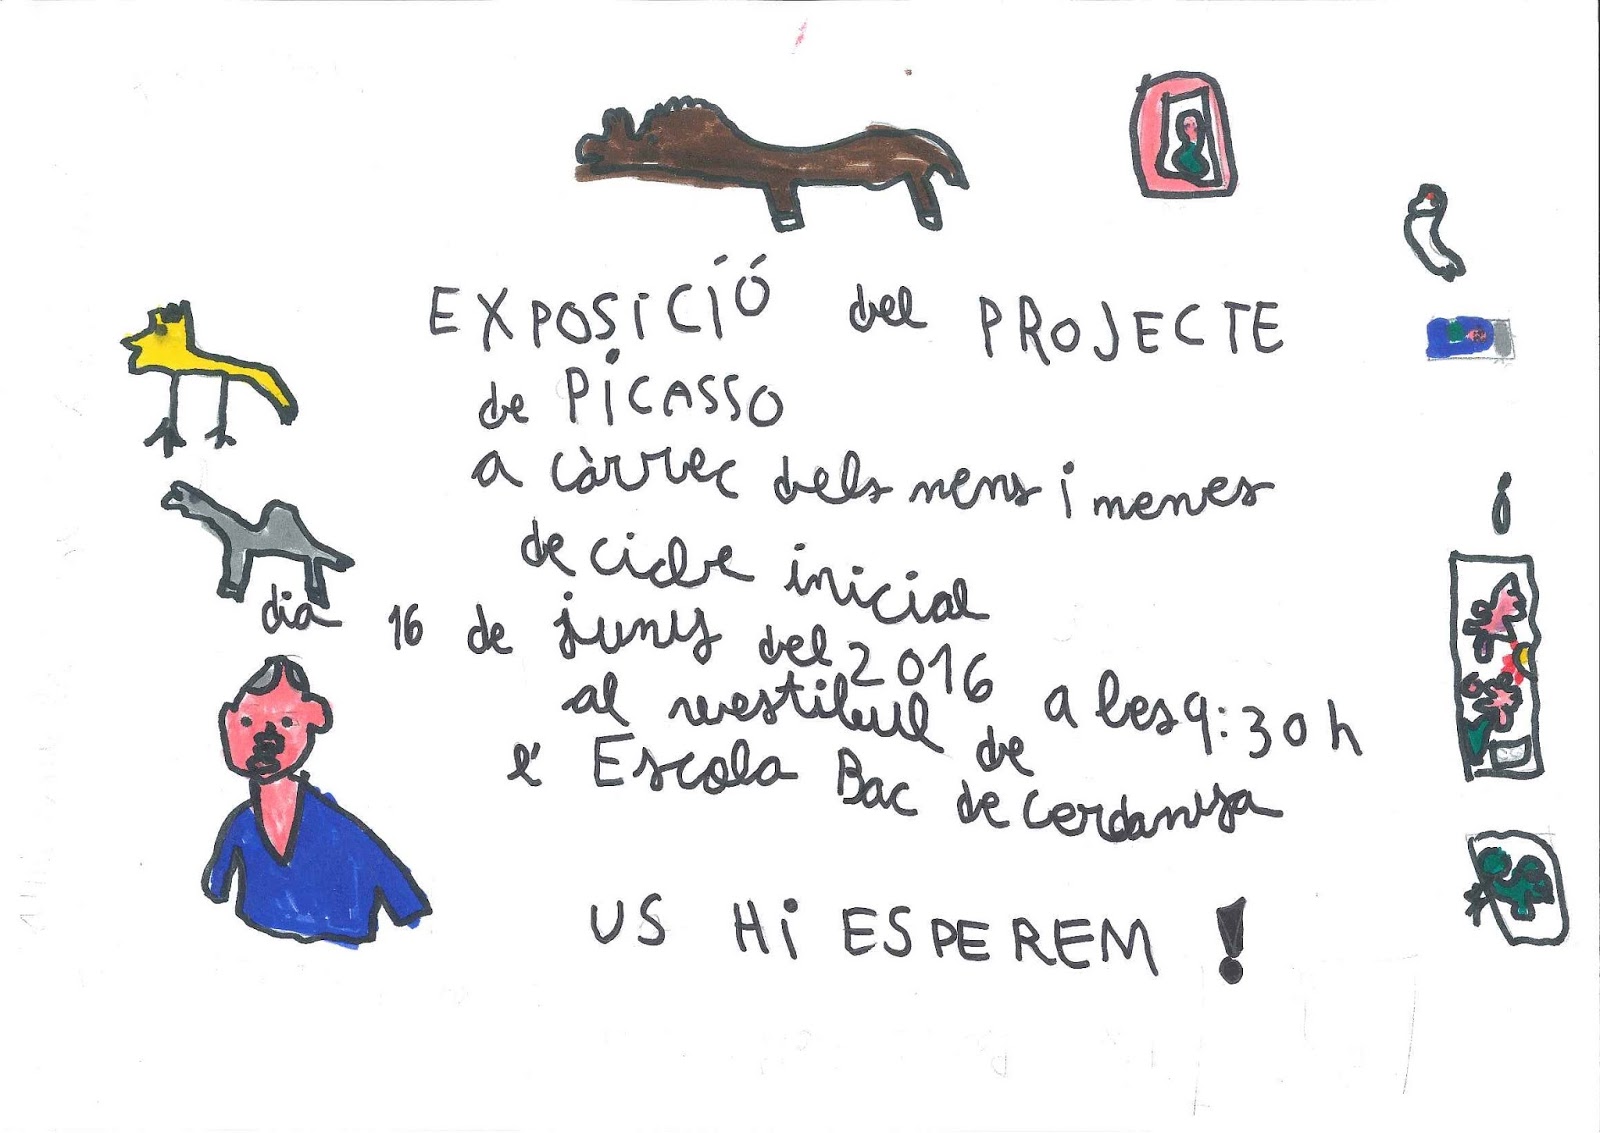 EXPOSiCIÓ del PROJECTE
de PiCASSO
a càrrec dels nens i nenes
de cicle inicial
dia 16 de juny del 2016 a les 9:30 h
al vestibul de
l'Escola Bac de Cerdanya
US Hi ESPEREM!